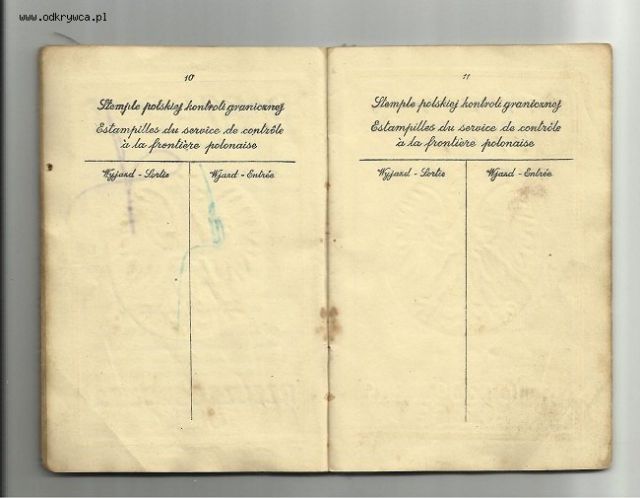 www.odkrywca.pl
10
Stemple polskiej kontroli granicznej
Estampilles du service de contrôle
à la frontière polonaise
Wyjazd - Sortie
Wjazd - Entrée
11
Stemple polskiej kontroli granicznej
Estampilles du service de contrôle
à la frontière polonaise
Wyjazd - Sortie
Wjazd - Entrée